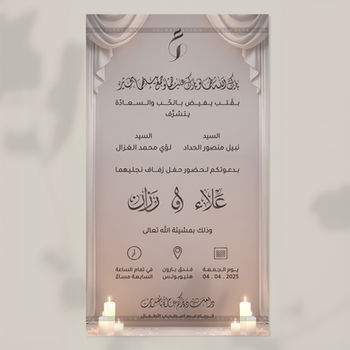 بارك الله لكما وبارك عليكما وجمع بينكما في خير
بقلب يفيض بالحب والسعادة
يتشرف
السيد
نبيل منصور الحداد
السيد
لؤي محمد الغزال
بدعوتكم لحضور حفل زفاف نجليهما
علاء و رزان
وذلك بمشيئة الله تعالى
يوم الجمعة
04 . 04 . 2025
فندق بارون
هليوبوليس
في تمام الساعة
السابعة مساءً
الرجاء عدم اصطحاب الأطفال